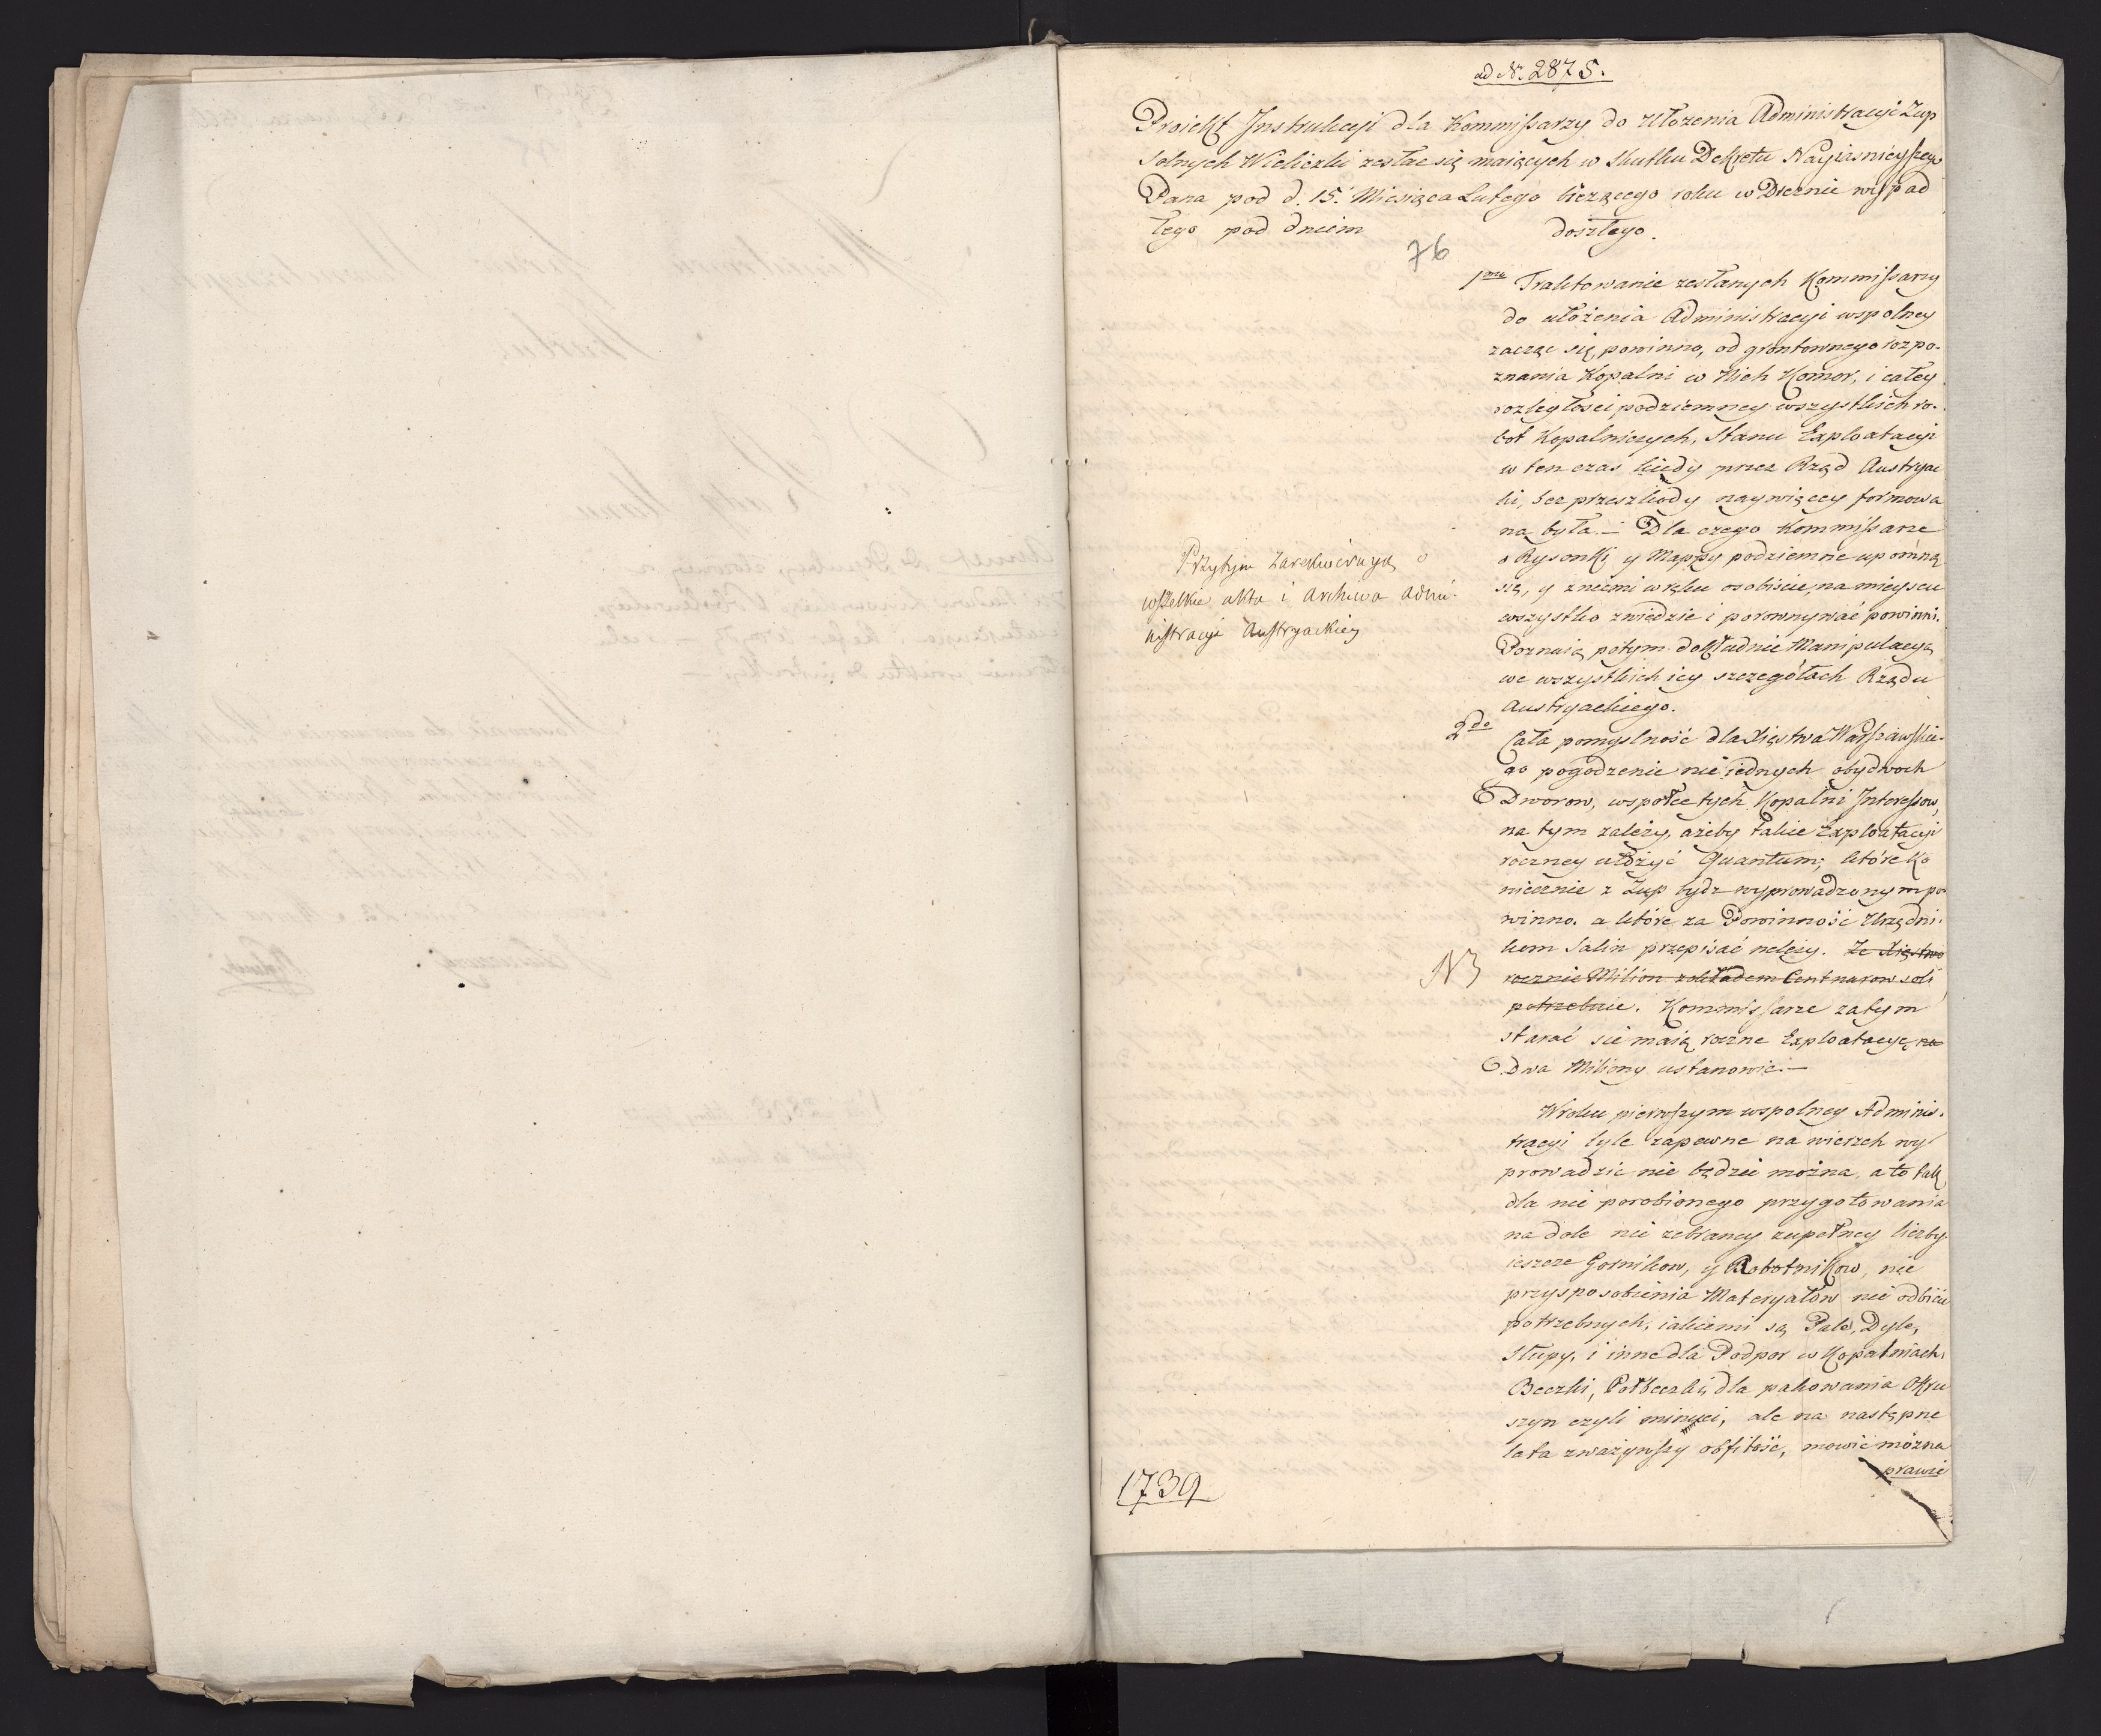 ad Nr. 2875.
Proiekt Instrukcyi dla Kommissarzy do Ułożenia Administracyi Żup
solnych Wieliczki zesłac się maiących w skutku Dekretu Nayiasnieyszego
Pana pod d. 15. Miesiąca Lutego bieżącego roku w Dreznie wypad
łego pod dniem doszłego.
76
1mo Traktowanie zesłanych Kommissarzy
do ułożenia Administracyi wspolney
zacząc się powinno, od gruntownego rozpo-
znania Kopalni w Nich Komor, i całey
rozległosci podziemney wszystkich ro-
bot Kopalniczych, Stanu Exploatacyi
w ten czas kiedy przez Rząd Austryac
ki, bez przeszkody naywięcey formowa
na była. – Dla czego Kommissarze
o Rysonki y Mappy podziemne upomną
się, y z niemi w ręku osobiscie, na mieyscu
wszystko zwiedzie i porownywać powinni.
Poznaią potym dokładnie Manipulacyą
we wszystkich iey szczegółach Rządu
Austryackiego.
Przytym zarekwiruyą
wszelkie akta i archiwa admi-
nistracyi Austryackiey
2do Cała pomyslność dla Xięstwa Warszawskie-
go pogodzenie nie iednych obydwoch
Dworow, wspołce tych Kopalni Interessow,
na tym zależy, ażeby takie Exploatacyi
roczney ułożyć Quantum; które Ko
niecznie z Żup bydz wyprowadzonym po
winno. a które za Powinność Urzędni-
kom Salin przepisać należy. Ze Xięstwo
rocznie Milion zokładem Centnarow soli
potrzebuie. Kommissarze zatym
NB
starać sie maią roczne Exploatacyę na
Dwa Miliony ustanowic. –
W roku pierwszym wspolney Adminis-
tracyi tyle zapewne na wierzch wy
prowadzic nie będzie można, a to tak
dla nie porobionego przygotowania
na dole nie zebraney zupełney liczby
ieszcze Gornikow, y Robotnikow, nie
przysposobienia Materyałow nie odbicie
potrzebnych, iakiemi są Pale, Dyle,
Słupy, i inne dla Podpor w Kopalniach,
Beczki, Połbeczki, dla pakowania Okru
szyn czyli minuci, ale na następne
lata zważywszy obfitość, mowić można
prawie
1739